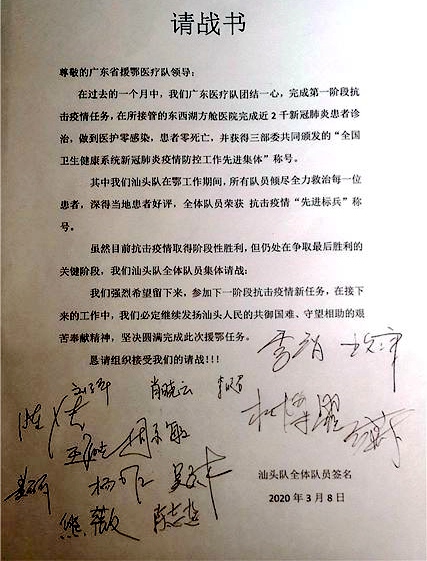 请战书
尊敬的广东省援鄂医疗队领导：
在过去的一个月中，我们广东医疗队团结一心，完成第一阶段抗
击疫情任务，在所接管的东西湖方舱医院完成近2千新冠肺炎患者诊
治，做到医护零感染，患者零死亡，并获得三部委共同颁发的“全国
卫生健康系统新冠肺炎疫情防控工作先进集体”称号。
其中我们汕头队在鄂工作期间，所有队员倾尽全力救治每一位
患者，深得当地患者好评，全体队员荣获 抗击疫情“先进标兵”称
号。
虽然目前抗击疫情取得阶段性胜利，但仍处在争取最后胜利的
关键阶段，我们汕头队全体队员集体请战：
我们强烈希望留下来，参加下一阶段抗击疫情新任务，在接下
来的工作中，我们必定继续发扬汕头人民的共御国难、守望相助的艰
苦奉献精神，坚决圆满完成此次援鄂任务。
恳请组织接受我们的请战！！！
肖晓云
熊薇 陈志
汕头队全体队员签名
2020年3月8日